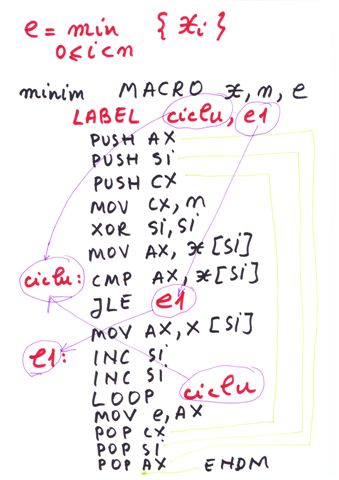 e = min {xi}
0≤i<n
minim MACRO x, n, e
LABEL ciclu, e1
PUSH AX
PUSH Si
PUSH CX
MOV CX, n
XOR Si, Si
MOV AX, x [Si]
ciclu: CMP AX, x[Si]
JLE e1
MOV AX, X [Si]
e1: INC Si
INC Si
LOOP ciclu
MOV e, AX
POP CX
POP Si
POP AX ENDM